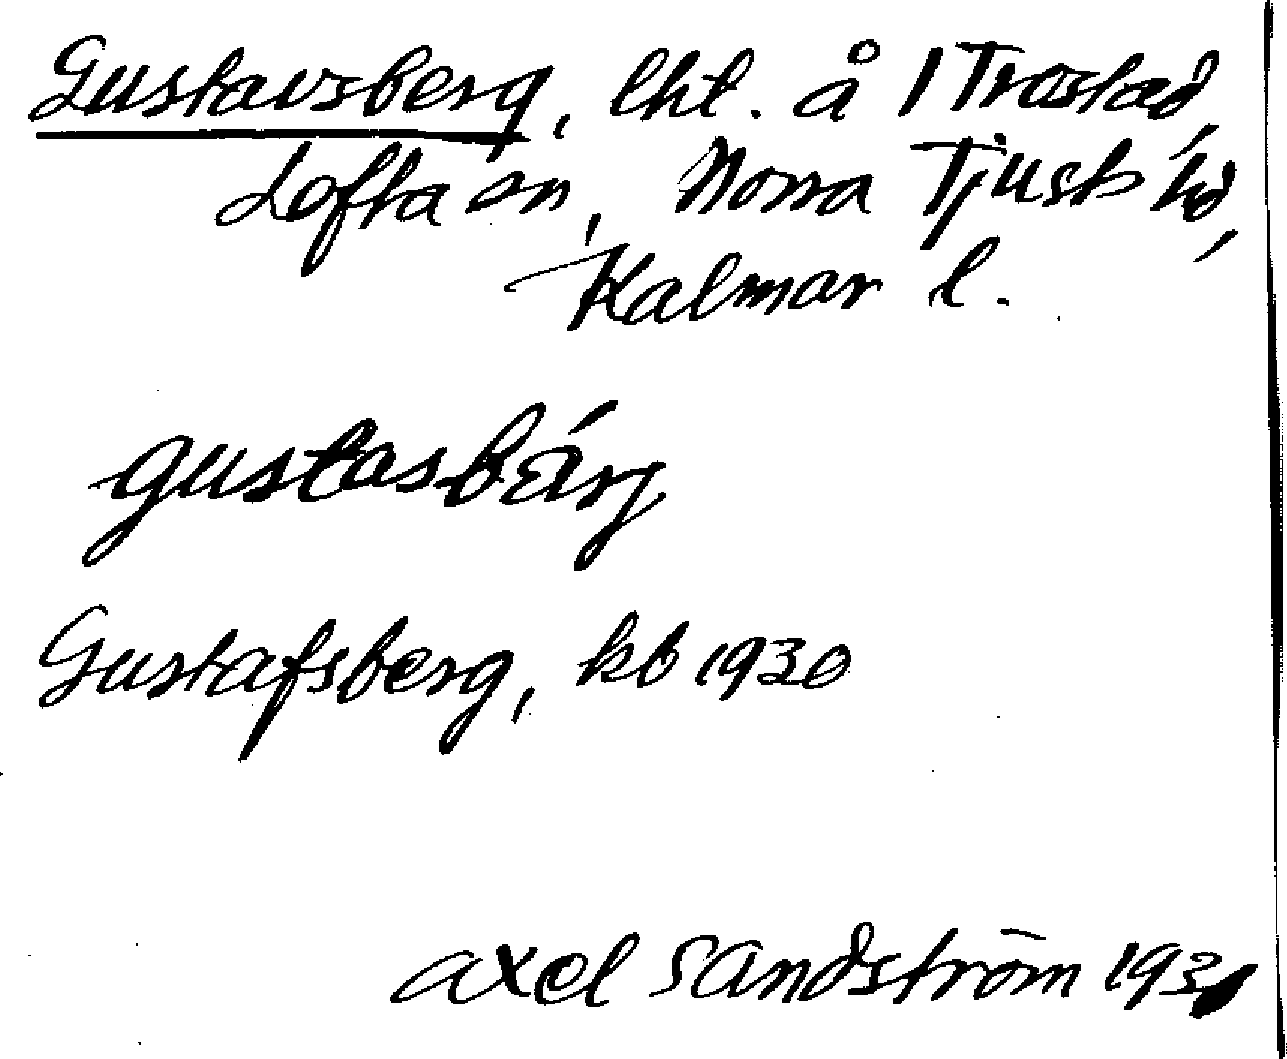 Gustavsberg, lht. å 1 Trostad,
Lofta sn, Norra Tjusts hd,
Kalmar l.
gustasbärj
Gustafsberg, kb 1930
Axel Sandström